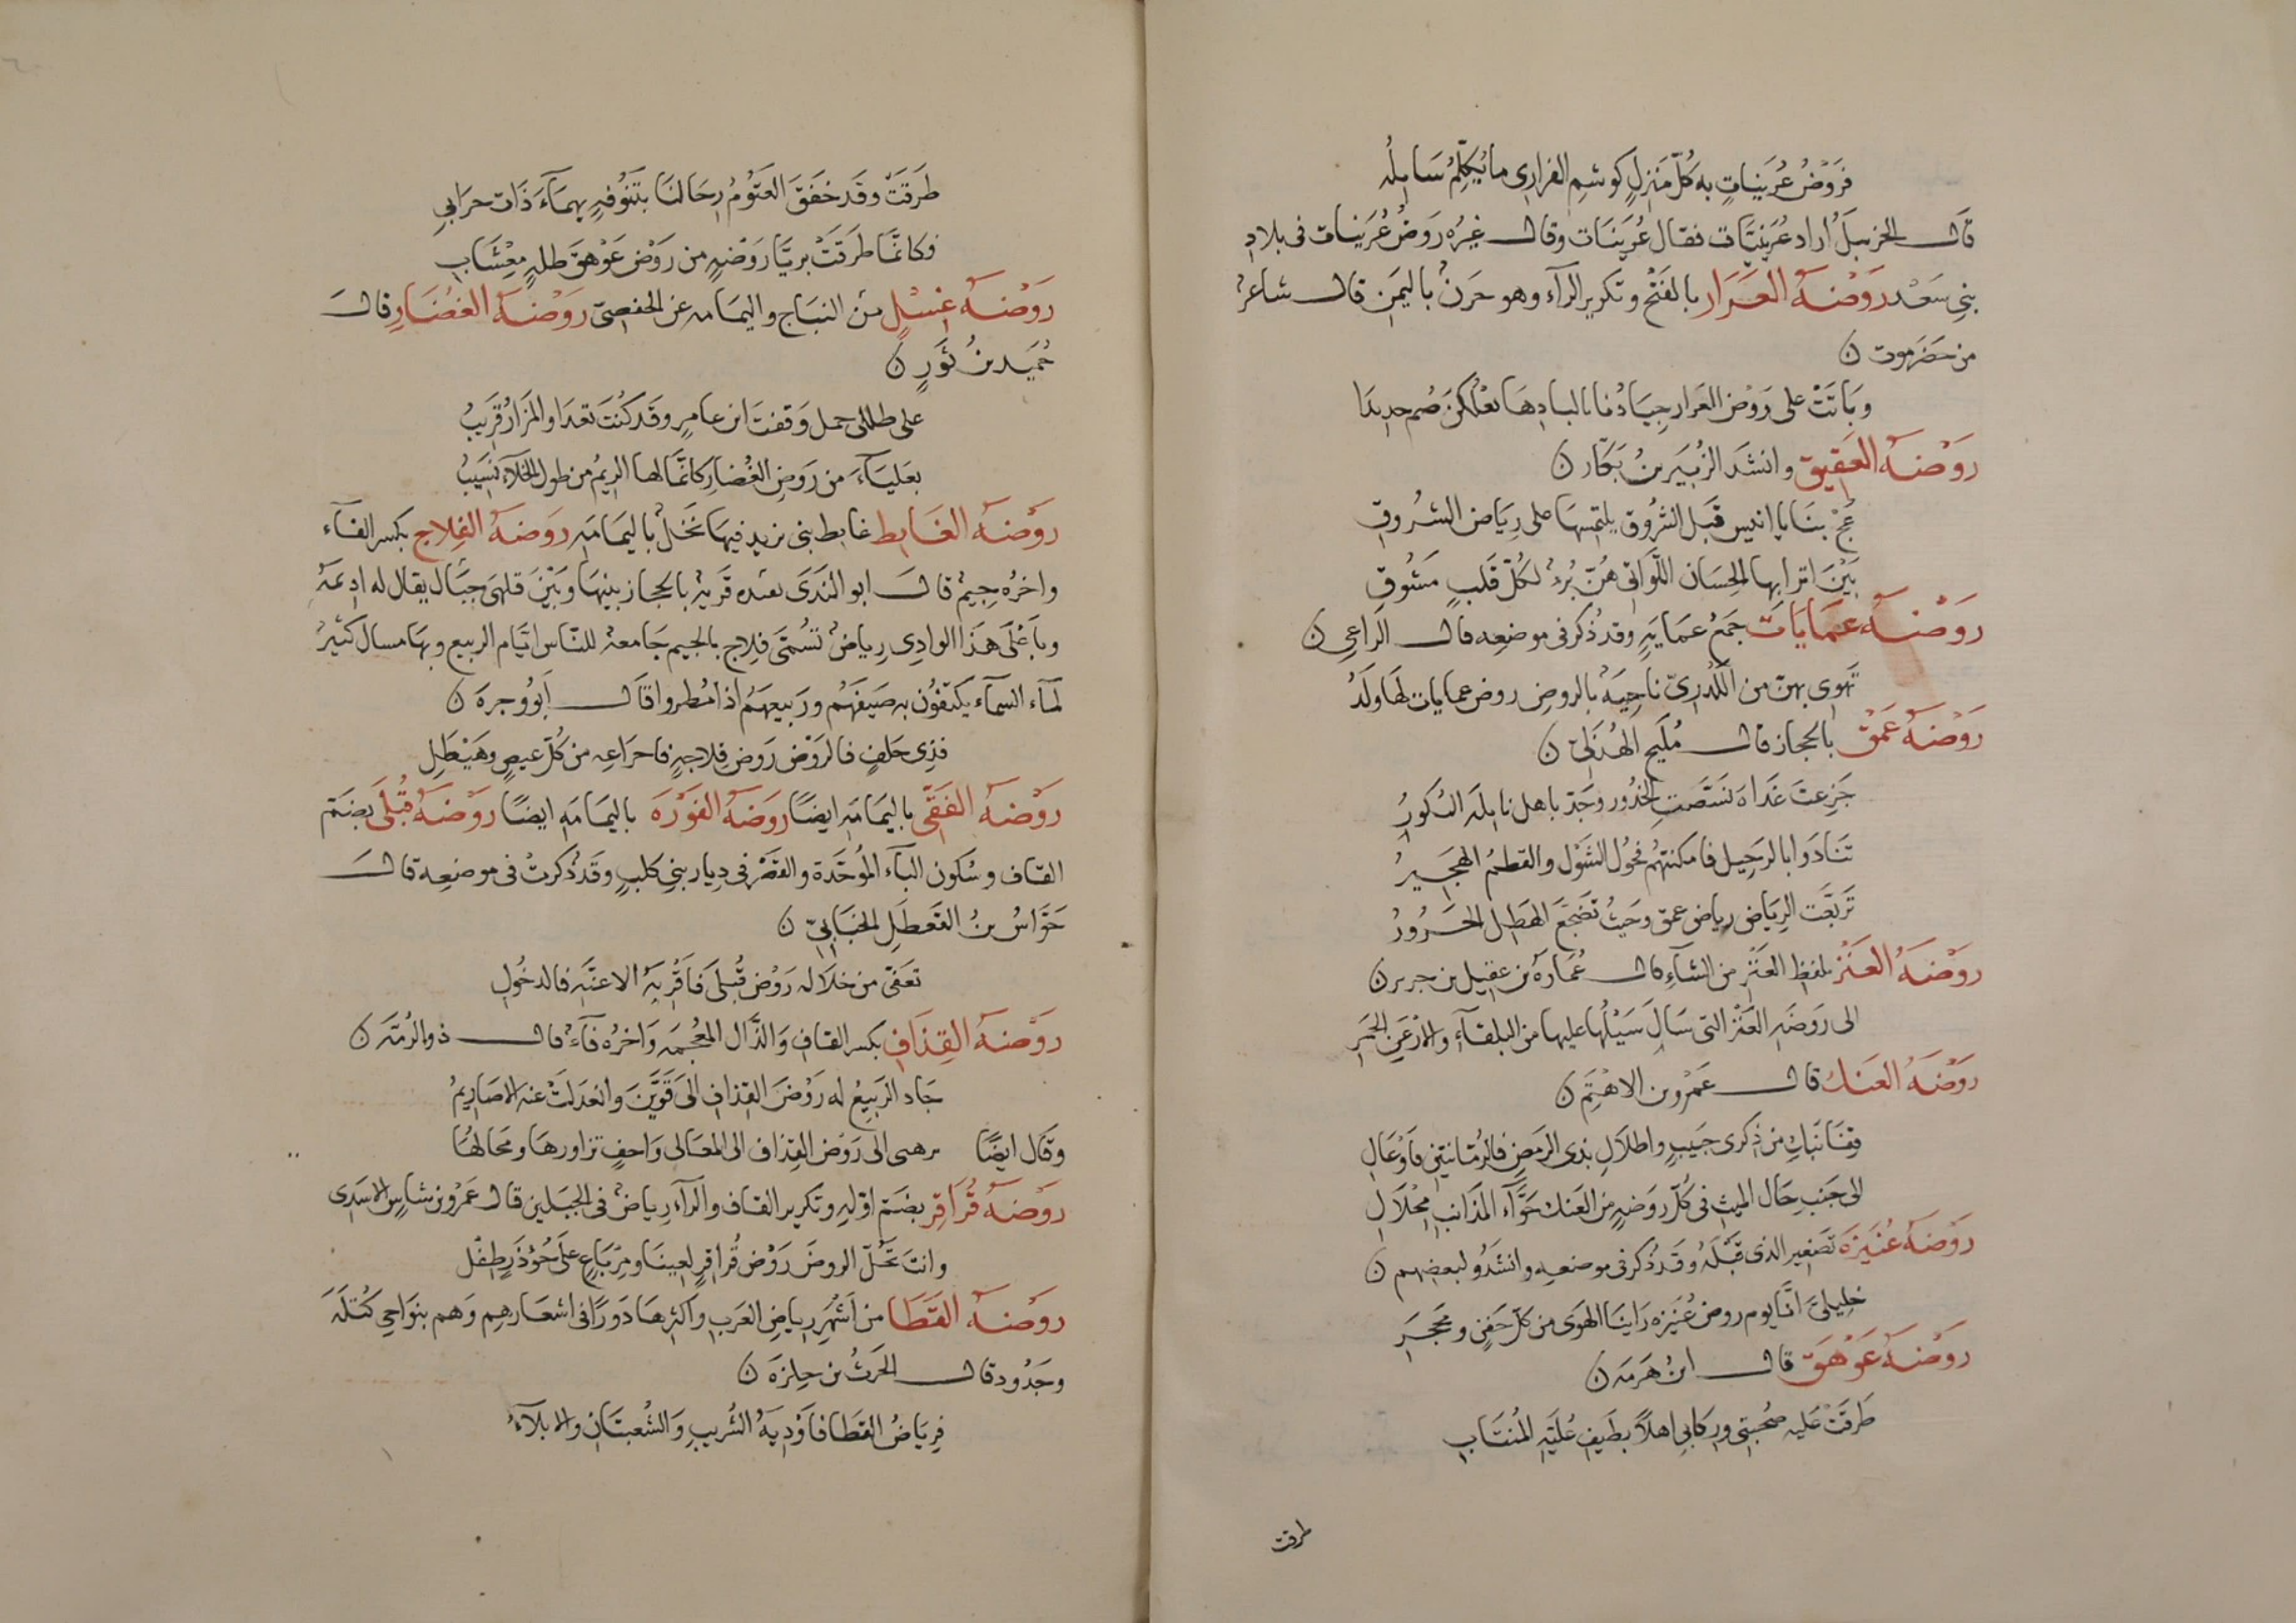 فروضُ عُرَينياتٍ به كُلّ مَنزِلٍ كوشمِ الفزارى ما يُكلّمُ سَايلُه
قال الحزنبل اراد عُرَينيّات فقال عُرَينَات وقال غيرُه رَوضُ عُرَينات فى بلاد
بنى سَعْد رَوْضَة العَرَار بالفَتْح وتكرير الرآء وهو حزنٌ باليمَن قال شاعرٌ
من حَضرموت ن
وبَاتَتْ على رَوْض العَرار جِيَادُنا بالبادِهَا يعْلُكن صُم حديدَا
رَوْضَة العَقِيق وانشدَ الزُبَيرِ بنُ بَكّار ن
عُجْ بنَا يا انيس قَبل الشرُوق يلتمسها على رِيَاض الشُروق
بَيْنَ اترابها الحِسَان اللّوَاتى هُنّ بُرءٌ لكُلّ قَلبٍ مَشُوق
رَوْضَة عمَايَات جَمعُ عمَايَةٍ وقد ذُكر فى موضعِه قال الراعى ن
تَهوى بهنّ من الكُدرىّ ناحِيَةٌ بالروضِ روض عمايات لهَا ولَدُ
رَوْضَة عَمْق بالحجاز قال مُلَيح الهُذَلىّ ن
جَزِعتَ غَدَاة نَشّصتِ الخدُور وجَدّ باهل نايلَة البُكورُ
تَنَادَوا بالرحِيل فامكنَتهُم فحُولُ الشَوْل والقطمُ الهجَيرُ
تَربّعَت الرِيَاض رياض عمق وحَيثُ تَضجّعَ الهَطِل الجَرورُ
رَوْضَة العَنْز بلفظِ العَنْزِ من الشآءِ قال عُمَارة بن عقيل بن جرير ن
الى رَوضَةِ العَنْز التى سَالَ سَيْلُها عليها من البلقآءِ والاَرْعَن الحُمرِ
رَوْضَة العنك قال عَمْرو بن الاهْتَم ن
قِفَا نَبكِ من ذِكرى حَبيبٍ واطلالِ بذى الرَمضِ فالرُمّانتينِ فاَوْعَالِ
الى جَنبِ حَال الميثِ فى كُلّ رَوضَةٍ من العَنك حَوَّآء المَذَانبِ مِحْلَالِ
رَوْضَة عُنَيزَة تَصغير الذى قبْلَهُ وقد ذُكر فى موضعِه وانشدُو لبعضِهم ن
خليليّ انّا يوم روض عُنَيزه رَاينَا الهَوى من كلّ جَفنٍ ومَحجَرِ
رَوْضَة عَوْهَق قال ابنُ هَرمَة ن
طَرقَتْ عُليه صُحبَتى ورِكابى اهلًا بطَيفِ عُليّةِ المُنتَابِ
طرقت
طَرقَتْ وقَد خفَقَ العَتُومُ رِحَالنَا بتَنُوفةٍ يهمآءَ ذَات حرَابى
فكانّمَا طَرَقَتْ بريَّا رَوْضةٍ من رَوْض عَوْهق طلةٍ مِعْشَابِ
رَوْضَة غِسْلٍ بين النبَاج واليمَامه عن الحفصىّ رَوْضَة الغُضَارِ قال
حُمَيد بنُ ثَورٍ ن
على طللى جمل وَقفتَ ابن عامرٍ وقَد كُنتَ تعدَا والمَزَارُ قَريبُ
بعَليَآءَ من رَوضِ الغُضار كانَّمَا لها الريمُ من طول الخلآءَ نَسيبُ
رَوْضَة الغَابِط غابط بنى يزيد فيهَا نَخلٌ باليمَامَة رَوْضَة الفِلاج بكسر الفآء
واخرُه جِيمٌ قال ابو النَدَى بعده قَريةٌ بالحجاز بينهَا وبَيْنَ قلهىَ جبَال يقال له ادِيمَة
وباَعْلَى هَذَا الوادِى رِياضٌ تسُمّى فِلاج بالجيم جَامعة للنّاس ايّام الربيع وبهَا مسال كثيرٌ
لمآء السمآء يكتَفُون به صَيفَهُم ورَبيعَهُم اذَا مُطروا قال ابُو وجزة ن
فذِى حَلفٍ فالرَوْض رَوض فِلاجةٍ فاجزاعه من كُلّ عيصٍ وهَيْطَلِ
رَوْضَة الفَقَى باليمَامَة ايضًا رَوضَة الفَوْرَة باليمَامَة ايضًا رَوْضَة قُبْلَى بضَم
القاف وسُكون البآء المُوحّدَة والقصْر فى دِيار بنى كلبٍ وقَد ذُكرتْ فى موضعِه قال
جَوّاسُ بنُ القَعطلِ الجنَابىّ ن
تعَفّى من خلَالَه رَوْض قُبلَى فاَقْرِيَةُ الاعنّةِ فالدخُولِ
رَوْضَة القِذَافِ بكسر القافِ وَالذّال المعجمَة وَاخرُه فآءٌ قال ذو الرُمّة ن
جَاد الرَبِيعُ له رَوْضَ القذافِ الى قَوَّينَ وانعدَلتْ عنه الاصَارِيمُ
وقَال ايضًا برهبى الى رَوْض القِذاف الى المعَالى وَاحفٍ تزاورهَا ومَحالهُا
رَوْضَة قُرَاقِرٍ بضَم اوّلهِ وتكرير القافِ والرآء رِياضٌ فى الجبَلين قال عَمْرو بن شاسِ الاسَدى
وانتَ تحُلّ الروضَ رَوْض قُراقرٍ لعينَا ومِربَاعٍ على جُوْذَرٍ طِفْل
رَوْضَة القَطَا من اَشْهَرِ رياضِ العَرب واكثرها دَورًا فى اشعَارهِم وَهم بنوَاحى كُتلَة
وجَدُود قال الحَرث بن حِلزَة ن
فِريَاضُ القَطَا فاَوْديةُ الشُربِ وَالشُعبتَانِ والابلآءُ